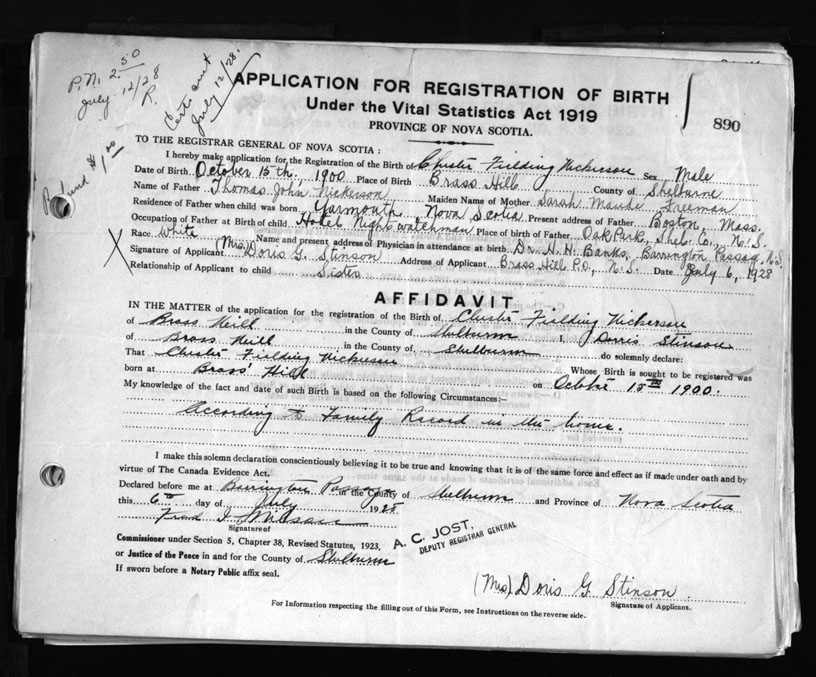 P.N. 2.50
July 12/28
R.
Certs sent
July 12/28.
$1.00
APPLICATION FOR REGISTRATION OF BIRTH
Under the Vital Statistics Act 1919
PROVINCE OF NOVA SCOTIA.
890
TO THE REGISTRAR GENERAL OF NOVA SCOTIA :
I hereby make application for the Registration of the Birth of Chester Fielding Nickerson Sex Male
Date of Birth October 15th, 1900 Place of Birth Brass Hill County of Shelburne
Name of Father Thomas John Nickerson Maiden Name of Mother Sarah Maude Freeman
Residence of Father when child was born Yarmouth, Nova Scotia Present address of Father Boston, Mass.
Occupation of Father at Birth of child Hotel Night watchman Place of birth of Father Oak Park, Shel. Co., N.S.
Race White Name and present address of Physician in attendance at birth Dr. H. H. Banks, Barrington Passage, N.S.
Signature of Applicant (Mrs) Doris G. Stinson Address of Applicant Brass Hill P.O., N.S. Date July 6, 1928
Relationship of Applicant to child Sister
AFFIDAVIT
IN THE MATTER of the application for the registration of the Birth of Chester Fielding Nickerson
of Brass Hill in the County of Shelburne I, Dorris Stinson
of Brass Hill in the County of Shelburne do solemnly declare:
That Chester Fielding Nickerson Whose Birth is sought to be registered was
born at Brass Hill on October 15th 1900.
My knowledge of the fact and date of such Birth is based on the following Circumstances:—
According to Family Record in the home.
I make this solemn declaration conscientiously believing it to be true and knowing that it is of the same force and effect as if made under oath and by
virtue of The Canada Evidence Act.
Declared before me at Barrington Passage in the County of Shelburne and Province of Nova Scotia
this 6th day of July 1928
Signature of
A. C. JOST,
DEPUTY REGISTRAR GENERAL
Commissioner under Section 5, Chapter 38, Revised Statutes, 1923,
or Justice of the Peace in and for the County of Shelburne
If sworn before a Notary Public affix seal.
(Mrs) Doris G Stinson
Signature of Applicant.
For Information respecting the filling out of this Form, see Instructions on the reverse side.